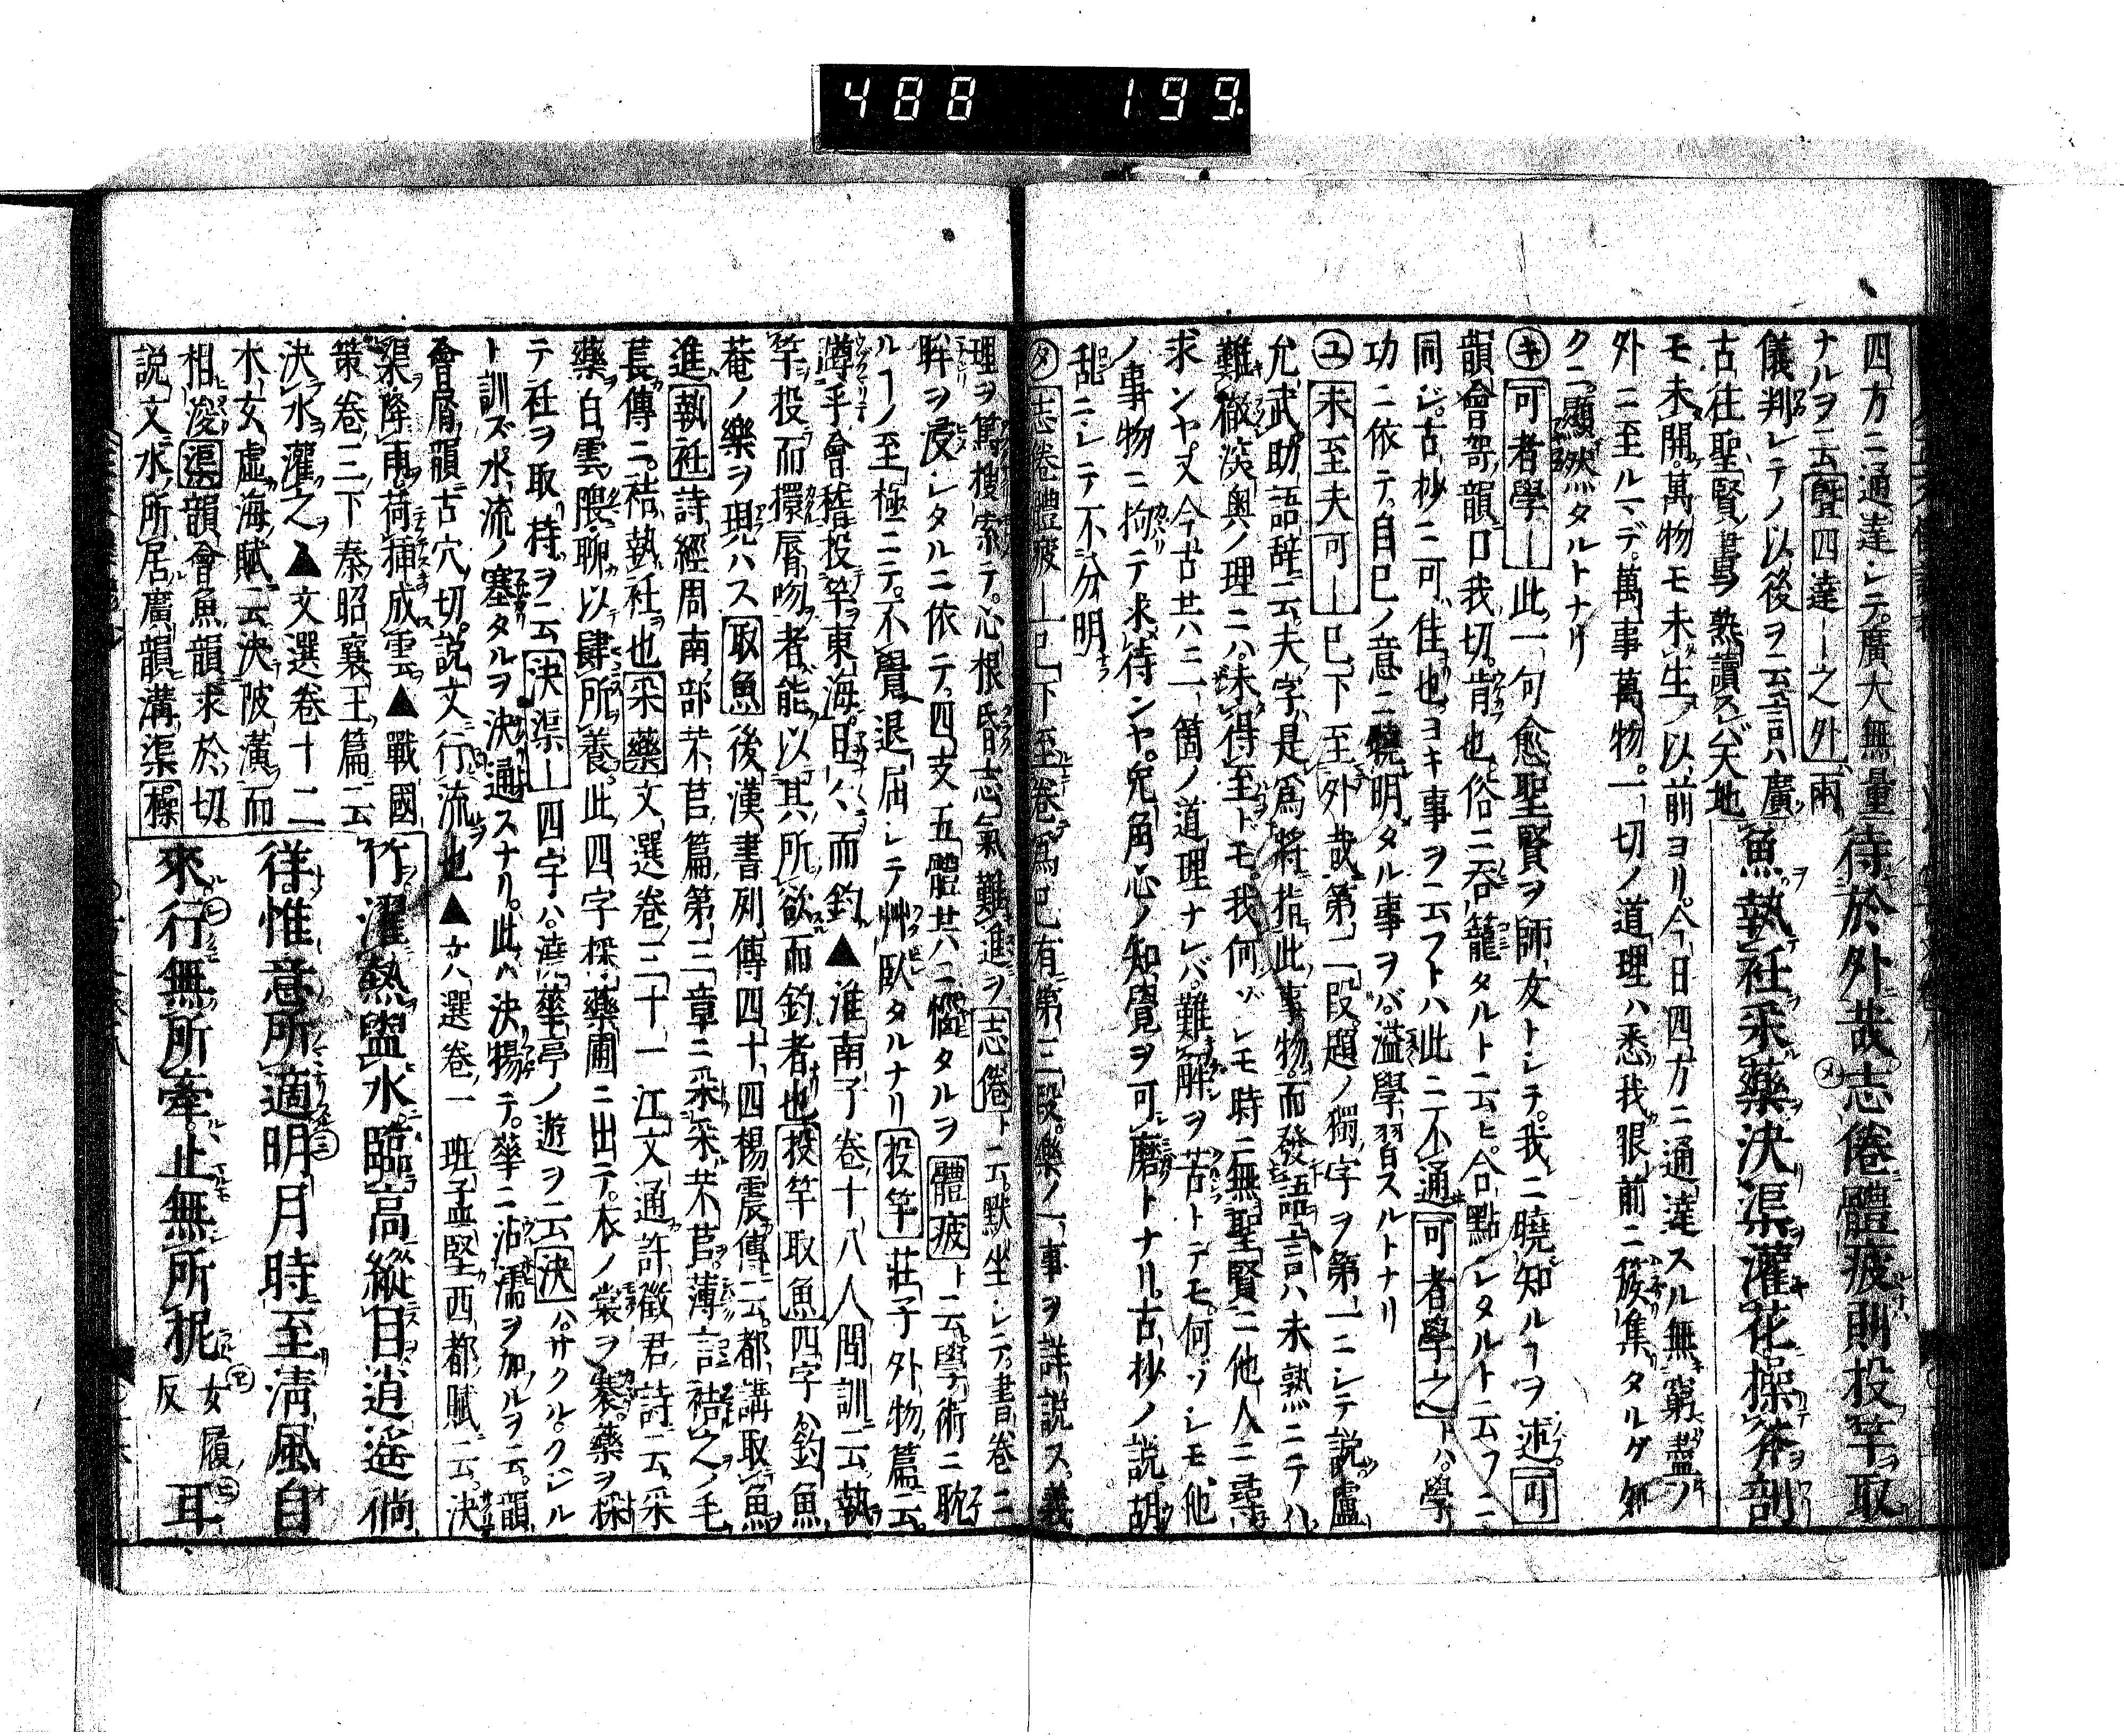 488 199
四方ニ通達シテ廣大無量
ナルヲ云曁四達―之外兩
儀判レテノ以後ヲ云言ハ廣
古往聖賢ノ書ヲ熟讀スレバ天地
待於外哉志倦體疲則投竿取
魚執衽采藥決渠灌花操斧剖
モ未開萬物モ未生ノ以前ヨリ今日四方ニ通達スル無窮盡ノ
外ニ至ルマデ萬事萬物一切ノ道理ハ悉我眼前ニ簇集タルゲ如
クニ顯然タルトナリ
㋖可者學―此一句愈聖賢ヲ師友トシテ我ニ曉知ルヿヲ述可
韻會哿韻口我切肯也俗ニ呑籠タルト云ヒ合點シタルト云フニ
同ジ古抄ニ可佳也ヨキ事ヲ云フトハ此ニ不通可者學之トハ學
功ニ依テ自己ノ意ニ曉明タル事ヲバ溢學習スルトナリ
㋴未至夫可―已下至外哉第二段題ノ獨字ヲ第一ニシテ説盧
允武助語辞云夫字是爲將指此事物而發語言ハ未熟ニテハ
難徹淡奧ノ理ニハ未得至トモ我何ゾシモ時ニ無聖賢ニ他人ニ尋
求ンヤ丈今古共ニ一箇ノ道理ナレバ難解ヲ苦トテモ何ゾシモ他
ノ事物ニ拘テ求待ンヤ兇角心ノ知覺ヲ可磨トナリ古抄ノ説胡
乱ニシテ不分明
㋱志倦體疲―已下至卷爲已有第三段樂ノ一事ヲ詳説ス義
理ヲ篤搜索テ心根昏志氣難進ヲ志倦ト云默坐シテ書卷ニ
眸ヲ浸シタルニ依テ四支五體共ニ惱タルヲ體疲ト云學術ニ耽
ルヿノ至極ニテ不覺退屈シテ艸臥タルナリ投竿莊子外物篇云
蹲乎會稽投竿東海旦々而釣▲淮南子卷十八人間訓云執
竿投而擐脣吻者能以其所欲而釣者也投竿取魚四字ハ釣魚
菴ノ樂ヲ現ハス取魚後漢書列傳四十四楊震傳云都講取魚
進執衽詩經周南部芣苢篇第三章ニ采采芣苢薄言袺之ノ毛
萇傳ニ袺執衽也采藥文選卷三十一江文通許徵君詩云采
藥白雲隈聊以肆所養此四字採藥圃ニ出テ衣ノ裳ヲ褰藥ヲ採
テ衽ヲ取持ヲ云決渠―四字ハ澆華亭ノ遊ヲ云決ハサクルクジル
ト訓ズ水流ノ塞タルヲ決通スナリ此ハ決揚テ華ニ沾濡ヲ加ルヲ云韻
會屑韻古穴切説文行流也▲文選卷一班孟堅西都賦云決
渠降雨荷揷成雲▲戰國
策卷三下秦昭襄王篇云
決水灌之▲文選卷十二
木玄虚海賦云決陂潢而
相浚渠韻會魚韻求於切
説文水所居廣韻溝渠操
竹濯熱盥水臨高縱目逍遙徜
徉惟意所適明月時至淸風自
來行無所牽止無所柅女履反耳